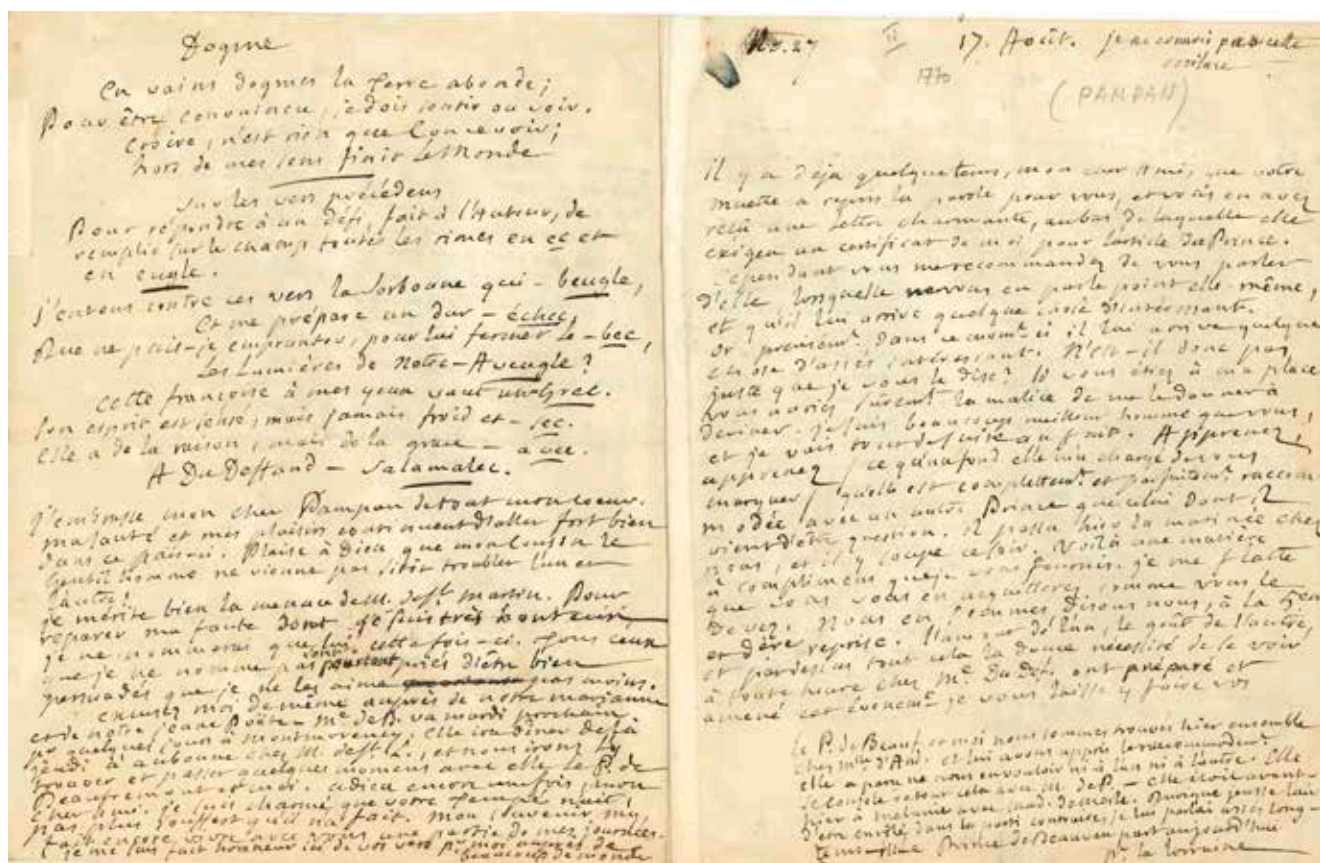 Dogme
En vains dogmes la terre abonde;
Pour être convaincu, je dois sentir ou voir.
Croire, n'est rien que Concevoir;
hors de mes sens finit le Monde
Sur les vers précédens
Pour répondre à un défi, fait à l'Auteur, de
remplir sur le champ toutes les rimes en ec et
en eugle.
J'entens contre ces vers la Sorbonne qui - beugle,
Et me prépare un dur - échec,
Que ne puis-je emprunter, pour lui fermer le - bec,
Les Lumières de Notre - Aveugle?
Cette françoise à mes yeux vaut un Grec.
Son esprit est sensé, mais jamais froid et - sec.
Elle a de la raison, mais de la grace - avec.
A Du Deffand - Salamalec.
J'embrasse mon cher Pampan de tout mon coeur.
ma santé et mes plaisirs continuent d'aller fort bien
dans ce païs-ci. Plaise à Dieu que
gentilhomme ne vienne pas sitôt troubler l'un et
l'autre!
je mérite bien la menace de M. de St. martin. Pour
reparer ma faute dont je suis très honteux,
je ne nommerai que lui cette fois-ci. Tous ceux
que je ne nomme pas d'être bien
persuadés que je ne les aime pas moins.
excusez moi de même auprès de notre marianne
et de notre jeune Poëte - Me. de B. va mardi prochain
pr. quelques jours à montmorency; elle ira dîner
jeudi à aubonne chez M. de St. L., et nous irons l'y
trouver et passer quelques momens avec elle le P. de
Beaufremont et moi. adieu encore une fois, mon
cher ami. je suis charmé que votre
pas plus souffert qu'il n'a fait. mon
fait encore vivre avec vous une partie de mes journées.
je me suis fait honneur ici de vos vers pr. moi auprès de
beaucoup de monde
No. 27 II 17. Août. je ne connois pas cette
écriture
1770
(PANPAN)
il y a déja quelque tems, mon cher Ami, que votre
muette a repris la parole pour vous, et vous en avez
reçu une lettre charmante, au bas de laquelle elle
exigea un certificat de moi pour l'article du Prince.
Cependant vous me recommandez de vous parler
d'elle lorsqu'elle ne vous en parle point elle-même,
et qu'il lui arrive quelque chose d'intéressant.
Or, dans ce momt. ci il lui arrive quelque
chose d'assés intéressant. N'est-il donc pas
juste que je vous le dise? Si vous étiez à ma place
vous auriez suremt. la malice de me le donner à
deviner. je suis beaucoup meilleur homme que vous,
et je vais tout de suite au fait. Apprenez,
apprenez (ce qu'au fond elle m'a chargé de vous
marquer) qu'elle est complettemt. et parfaitemt. raccom
modée avec un autre Prince que celui dont il
vient d'être question. Il passa hier la matinée chez
nous, et il y soupe ce soir. Voilà une matière
à complimens que je vous fournis. je me flatte
que vous vous en acquitterez comme vous le
devez. Nous en sommes disons nous, à la
et dere. reprise. L'amour de l'un, le goût de l'autre,
et pardessus tout cela la douce nécessité de se voir
à toute heure chez Me. Du Def. ont préparé et
amené cet évencmt. je vous laisse y faire vos
le P. de Beauf. et moi nous sommes trouvés hier ensemble
chez Mme. d'And. et lui avons appris le raccommodemt.
elle a paru ne nous en vouloir ni à l'un ni à l'autre. Elle
avec M. de P. - elle étoit avant-
hier à avec mad. Quoique j'eusse l'air
d'être enrôlé dans le parti contraire, je lui parlai assez long-
tems. Prince de Beauveau part aujourd'hui
pr. la lorraine